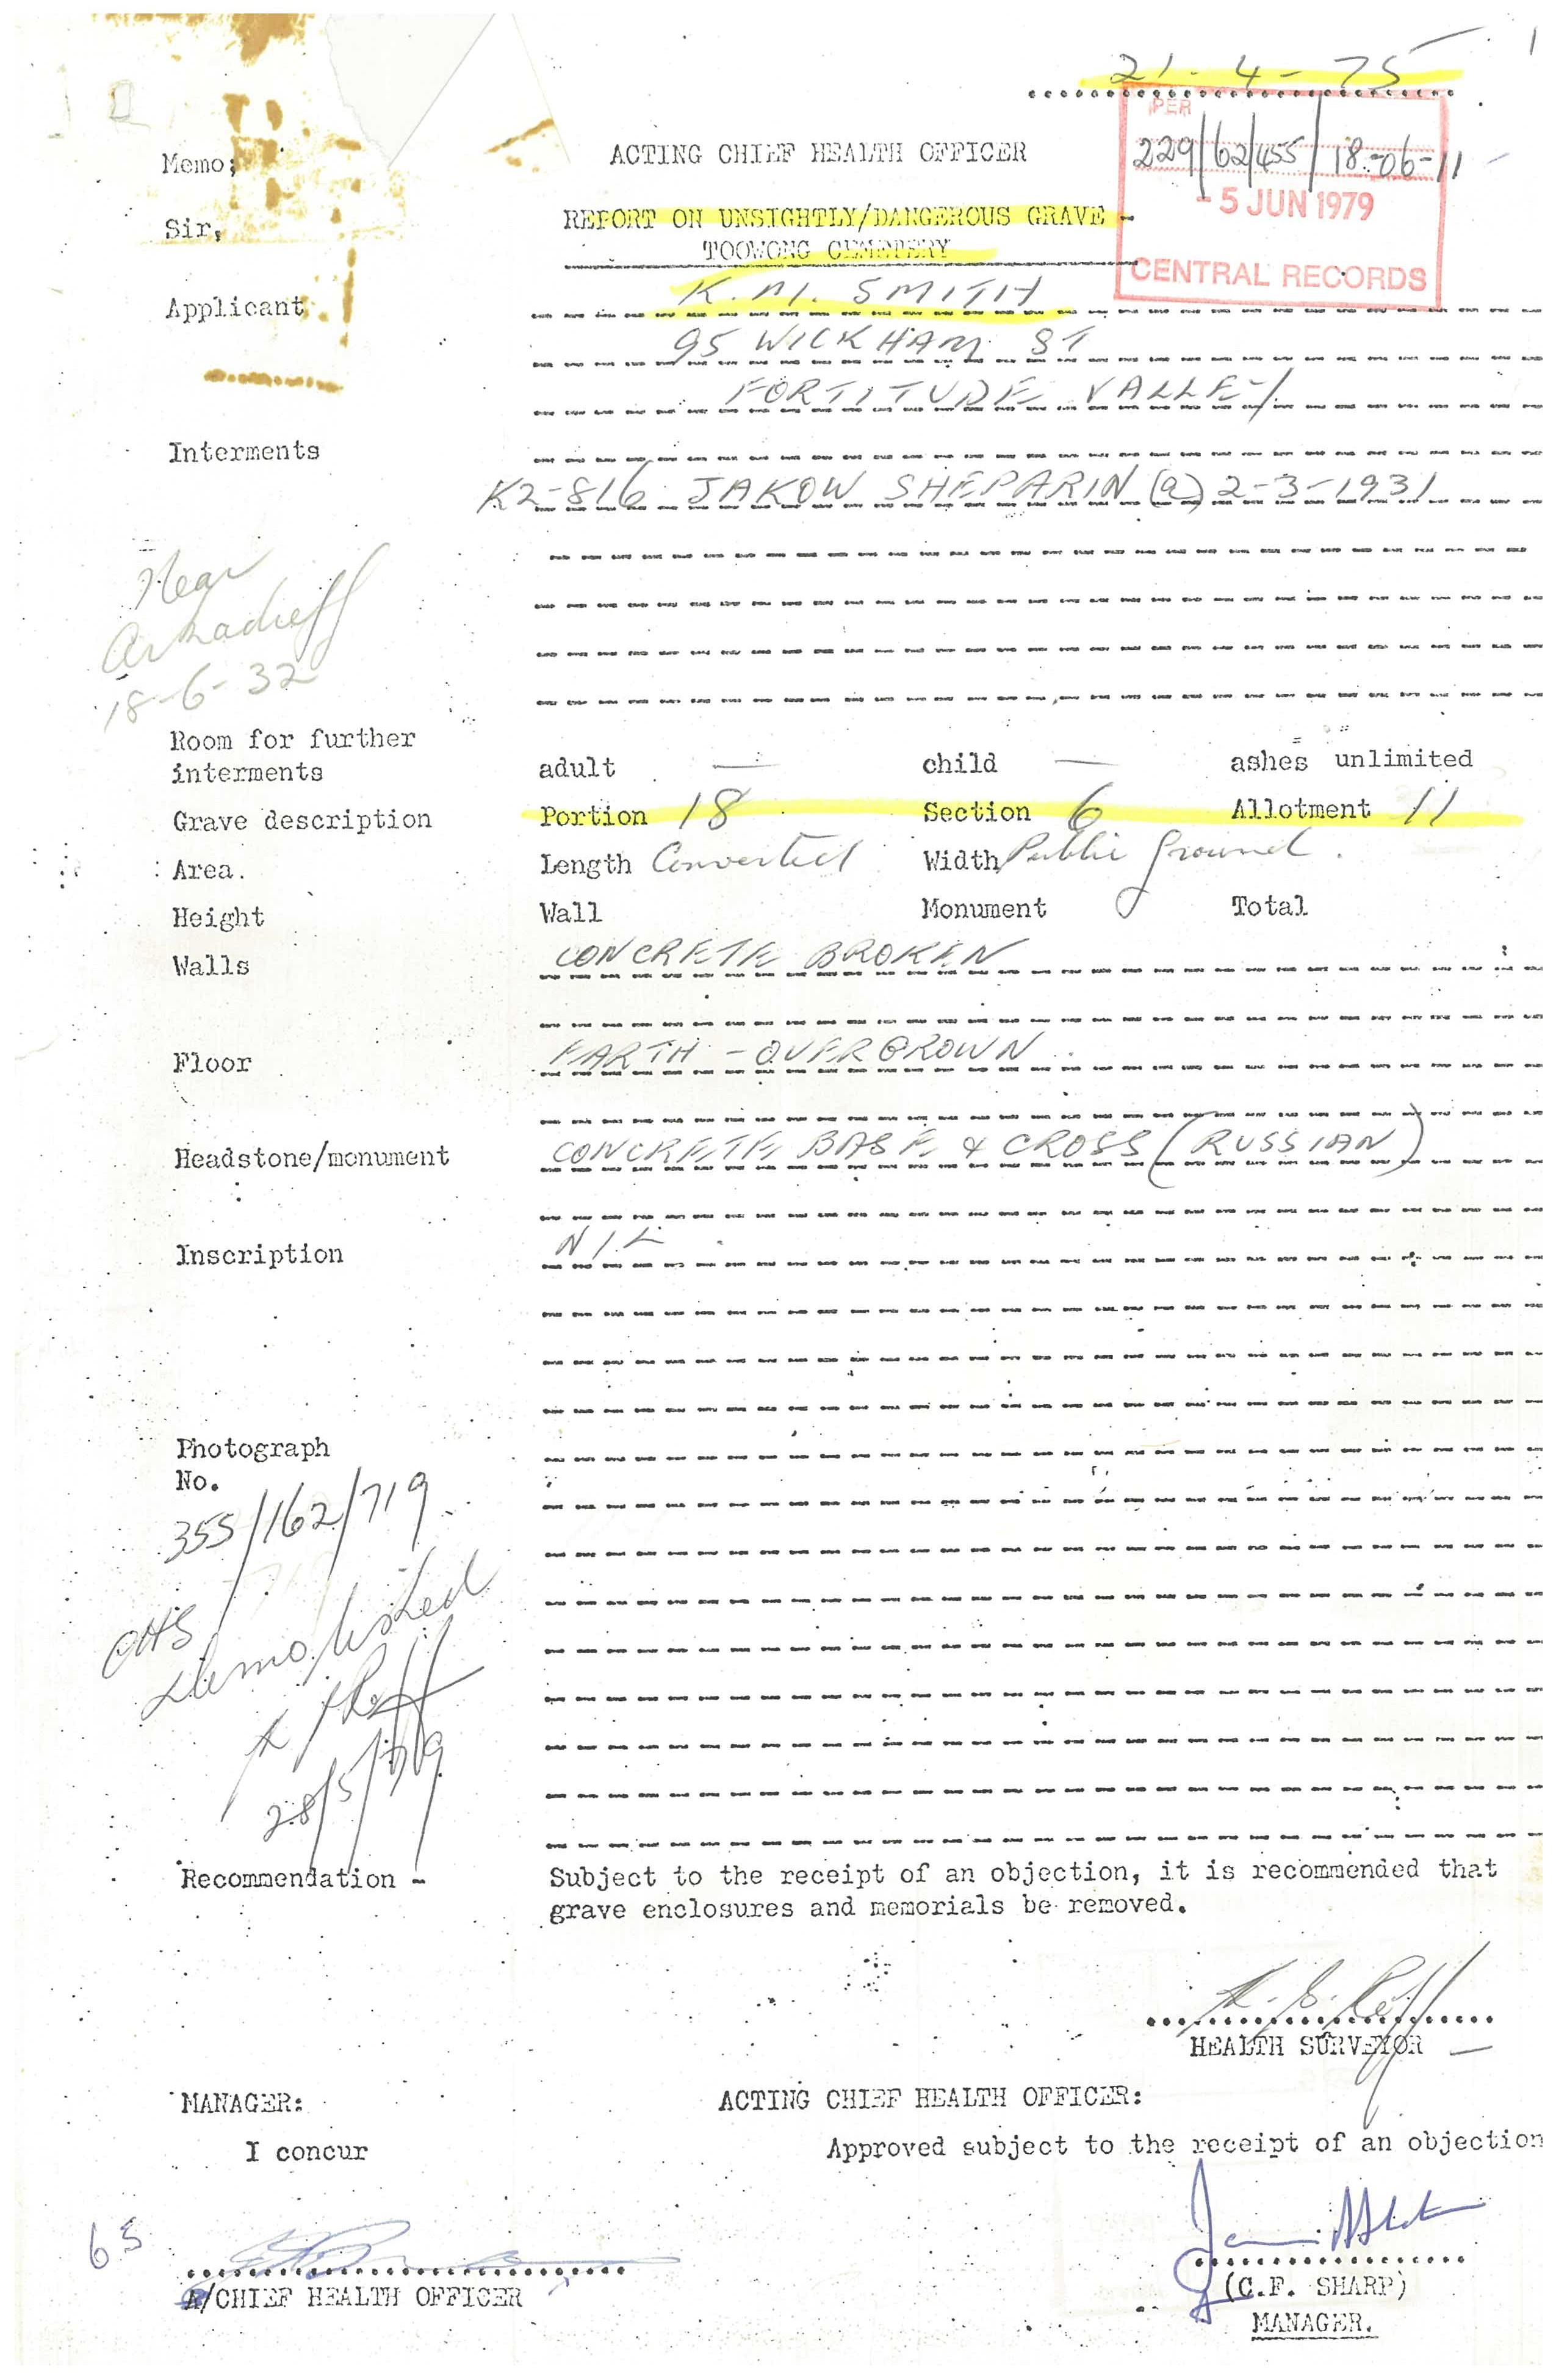 21-4-75
PER
229/62/455/18-06-11
- 5 JUN 1979
CENTRAL RECORDS
Memo;
ACTING CHIEF HEALTH OFFICER
Sir,
REPORT ON UNSIGHTLY/DANGEROUS GRAVE -
TOOWONG CEMETERY
Applicant
K.M. SMITH
95 WICKHAM ST
FORTITUDE VALLEY
Interments
K2-816 JAKOW SHEPARIN (a) 2-3-1931
Near
Arkadieff
18-6-32
Room for further
interments
adult — child — ashes unlimited
Grave description Portion 18 Section 6 Allotment 11
Area. Length Converted Width Public Ground.
Height Wall Monument Total
Walls CONCRETE BROKEN
Floor EARTH - OVERGROWN.
Headstone/monument CONCRETE BASE & CROSS (RUSSIAN)
Inscription NIL.
Photograph
No.
355/162/719
CHS
Demolished
28/5/79
Recommendation - Subject to the receipt of an objection, it is recommended that
grave enclosures and memorials be removed.
HEALTH SURVEYOR
MANAGER: ACTING CHIEF HEALTH OFFICER:
I concur Approved subject to the receipt of an objection
A/CHIEF HEALTH OFFICER
(C.F. SHARP)
MANAGER.